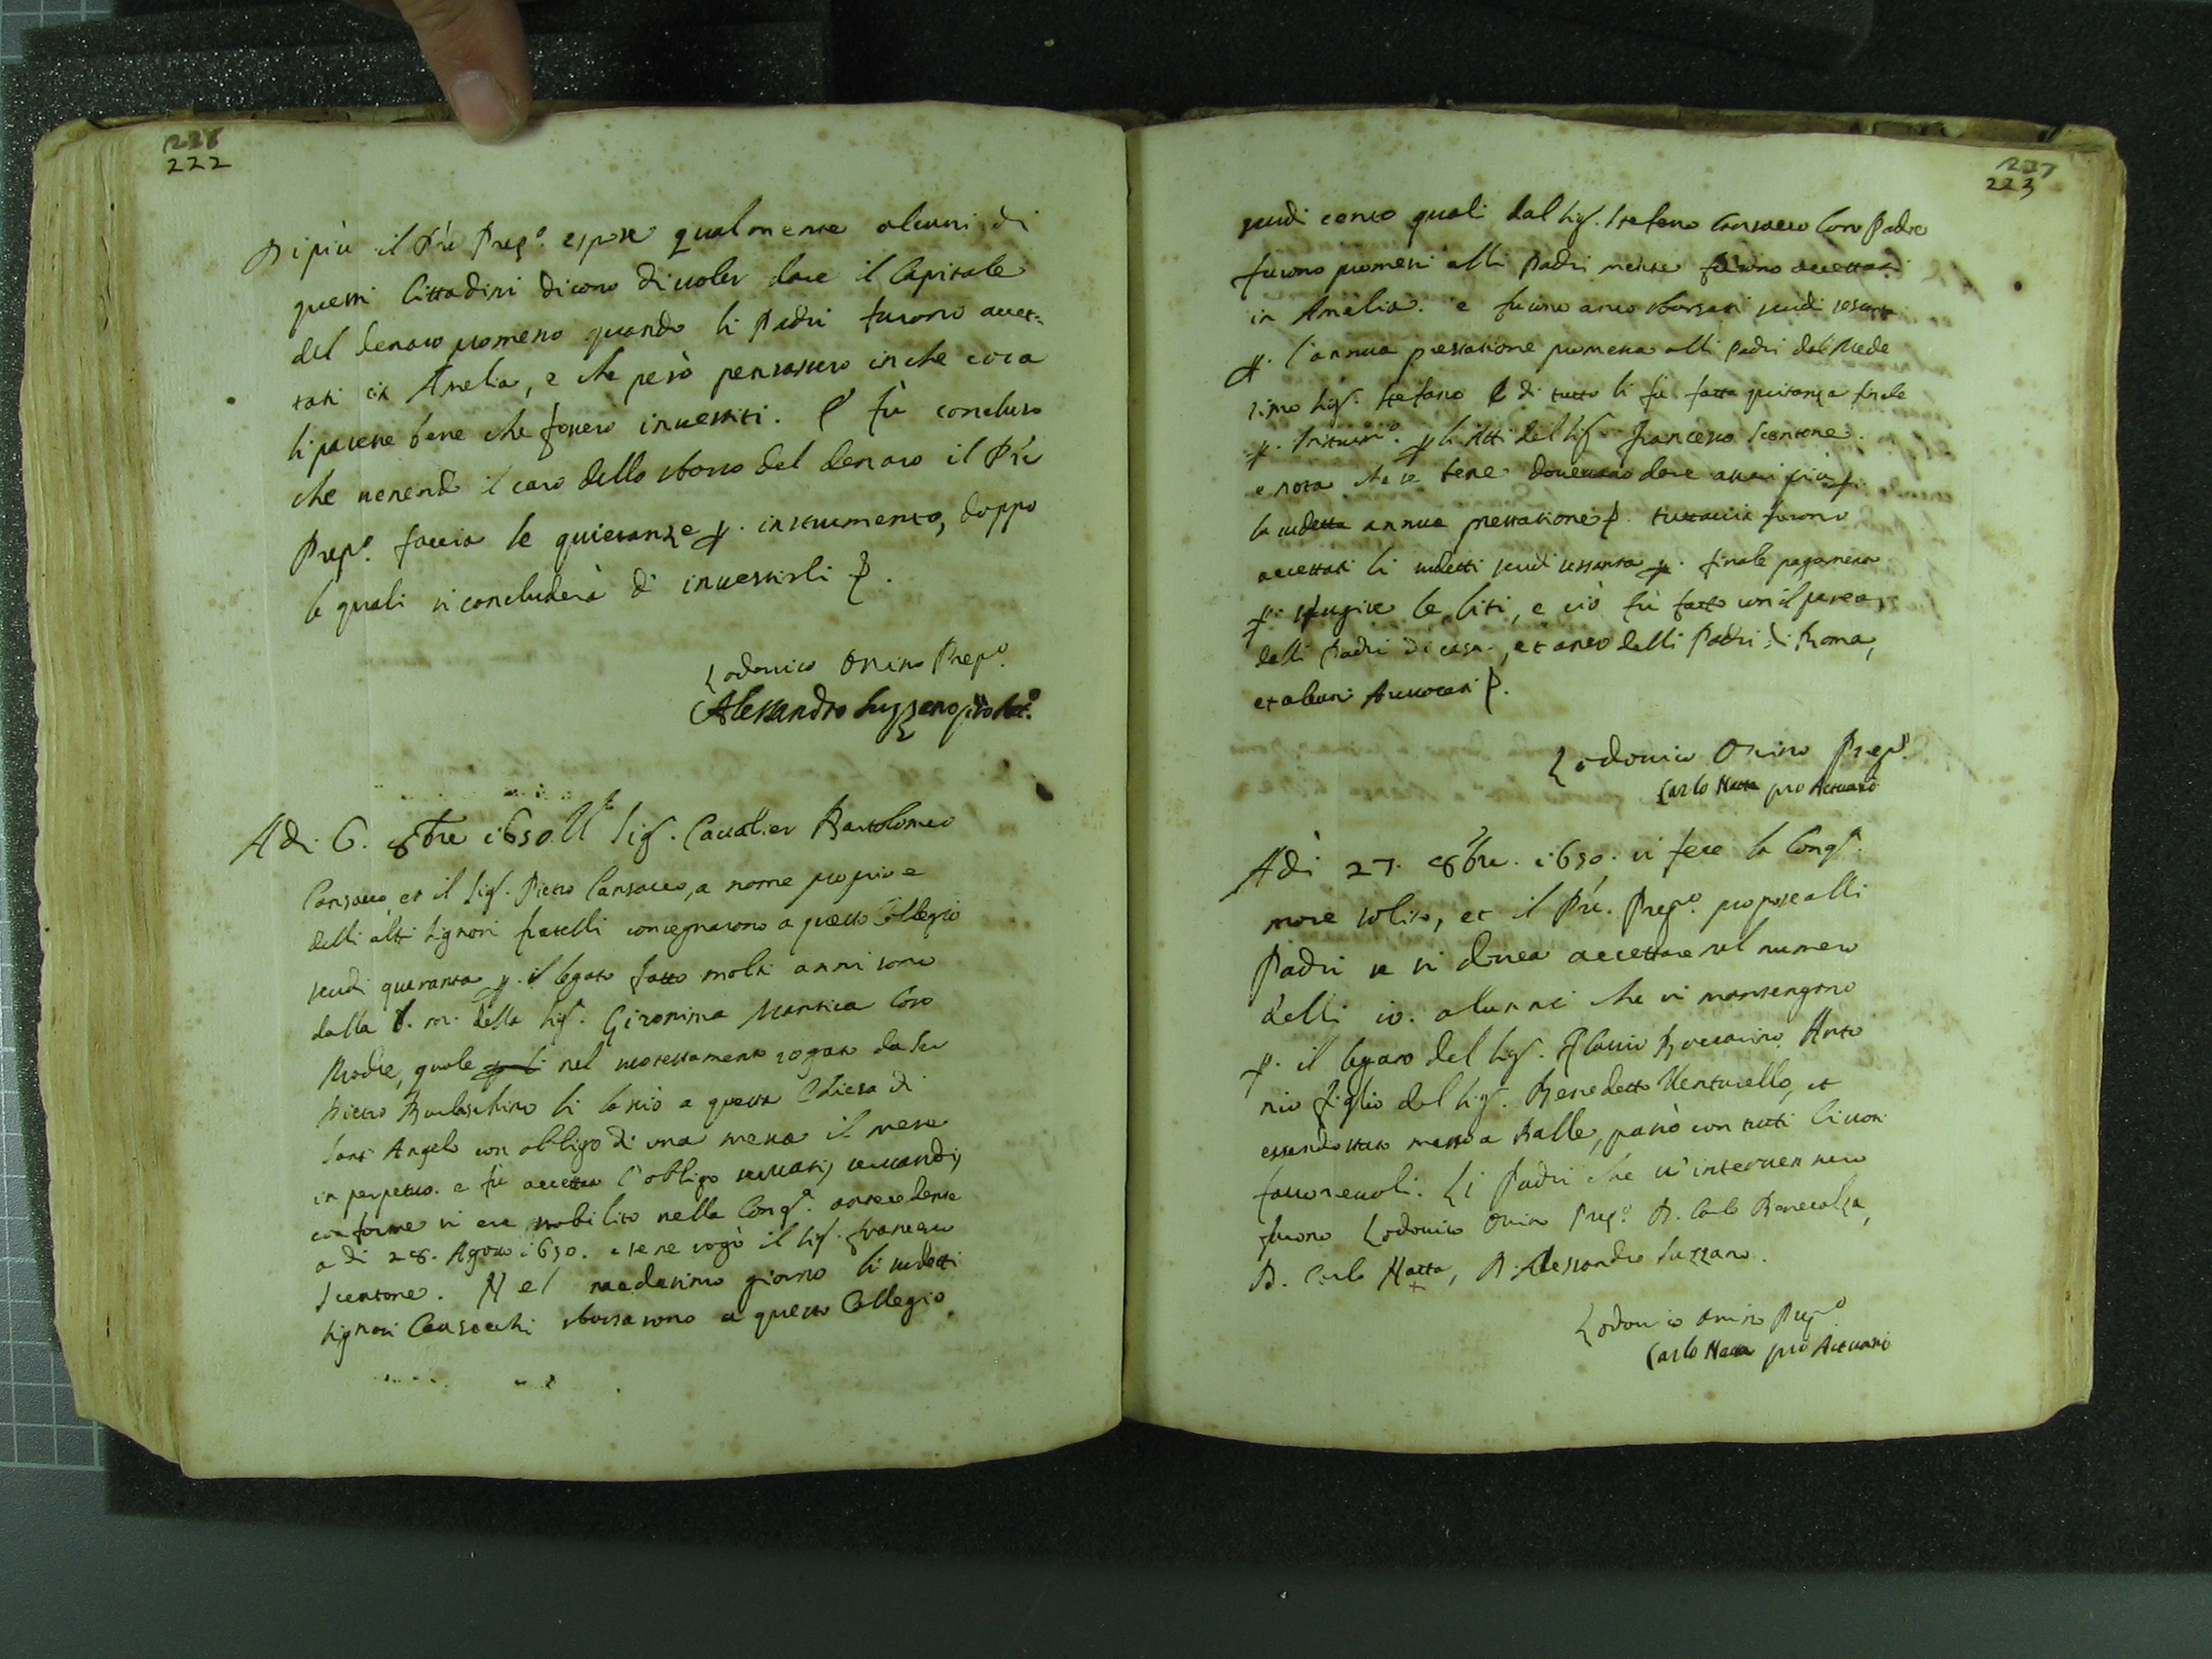 236
222
Di più il Prē Prepº. espose qualmente alcuni di
questi Cittadini dicono di voler dare il Capitale
del denaro promesso quando li Padri furono accet=
tati in Amelia, e che però pensassero in che cosa
li paresse bene che fossero investiti. E fù concluso
che venendo il caso dello sborso del denaro il Prē
Prepº. faccia le quietanze p. instrumento, doppo
le quali si concluderà di investirli
Lodovico Orsino Prepº.
Alessandro Suzzano
Adi 6. 8bre 1650. Il Sigʳ. Cavalier Bartolomeo
Cansacco et il Sigʳ. Pietro Cansacco, a nome proprio e
delli altri Signori fratelli consegnarono a questo Collegio
scudi quaranta p. il legato fatto molti anni sono
dalla f. m. della Sigʳ. Geronima Mantica loro
Madre, quale nel suo testamento rogato da Ser
Pietro li lasciò a questa Chiesa di
Sant Angelo con obligo di una messa il mese
in perpetuo. e fù accettato l'obligo servatis servandis
conforme si era stabilito nella Congª. antecedente
a di 28. Agosto 1650. e se ne rogò il Sigʳ. francesco
Scentone. Nel medesimo giorno li sudetti
Signori Cansacchi sborsarono a questo Collegio
237
223
scudi cento quali dal Sigʳ. Stefano Cansacco loro Padre
furono promessi alli Padri mentre furono accettati
in Amelia. e furono anco sborsati scudi sessanta
p. l'annua prestatione promessa alli Padri dal Mede
simo Sigʳ. Stefano e di tutto li fù fatta quitanza finale
p. Instrumº. p li Atti del Sigʳ Francesco Scentone.
e nota che se bene dovevano dare assai più p.
la sudetta annua prestatione tuttavia furono
accettati li sudetti scudi sessanta p. finale pagamento
p. sfugire le liti, e ciò fù fatto con il parere
delli Padri di casa, et anco delli Padri di Roma,
et alcuni Avvocati
Lodovico Orsino Prepº.
Carlo Natta pro Actuario
Adì 27. 8bre. 1650. si fece la Congª.
more solito, et il Prē. Prepº. propose alli
Padri se si dovea accettare nel numero
delli 10. alunni che si mantengono
p. il legato del Sigʳ. Flavio Boccarino Anto
nio figlio del Sigʳ. Benedetto Venturello, et
essendo stato messo a Balle, passò con tutti li voti
favorevoli. Li Padri che v'intervennero
furono Lodovico Orsino Prepº. D. Carlo
D. Carlo Natta, D. Alessandro Suzzano.
Lodovico Orsino Prepº
Carlo Natta pro Actuario